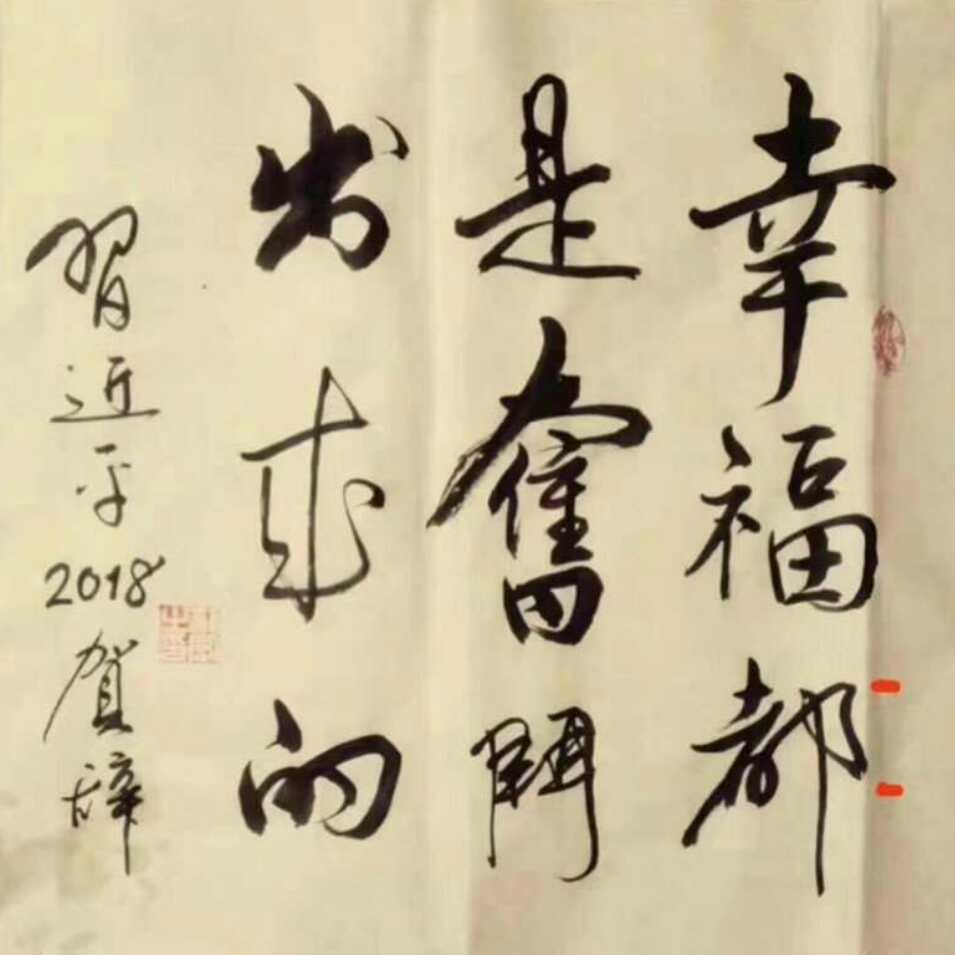 幸福都
是奮鬪
出来的
習近平2018賀辞